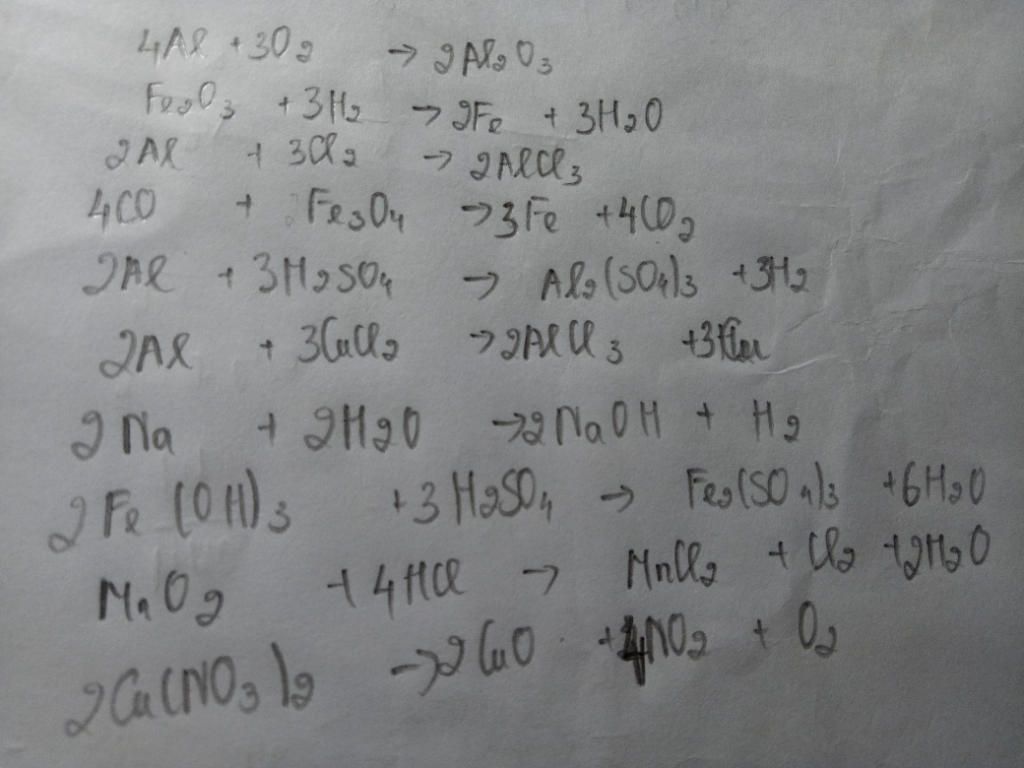 4Al + 3O2 → 2Al2O3
Fe2O3 + 3H2 → 2Fe + 3H2O
2Al + 3Cl2 → 2AlCl3
4CO + Fe3O4 → 3Fe + 4CO2
2Al + 3H2SO4 → Al2(SO4)3 + 3H2
2Al + 3CuCl2 → 2AlCl3 + 3Cu
2Na + 2H2O → 2NaOH + H2
2Fe(OH)3 + 3H2SO4 → Fe2(SO4)3 + 6H2O
MnO2 + 4HCl → MnCl2 + Cl2 + 2H2O
2Cu(NO3)2 → 2CuO + 4NO2 + O2